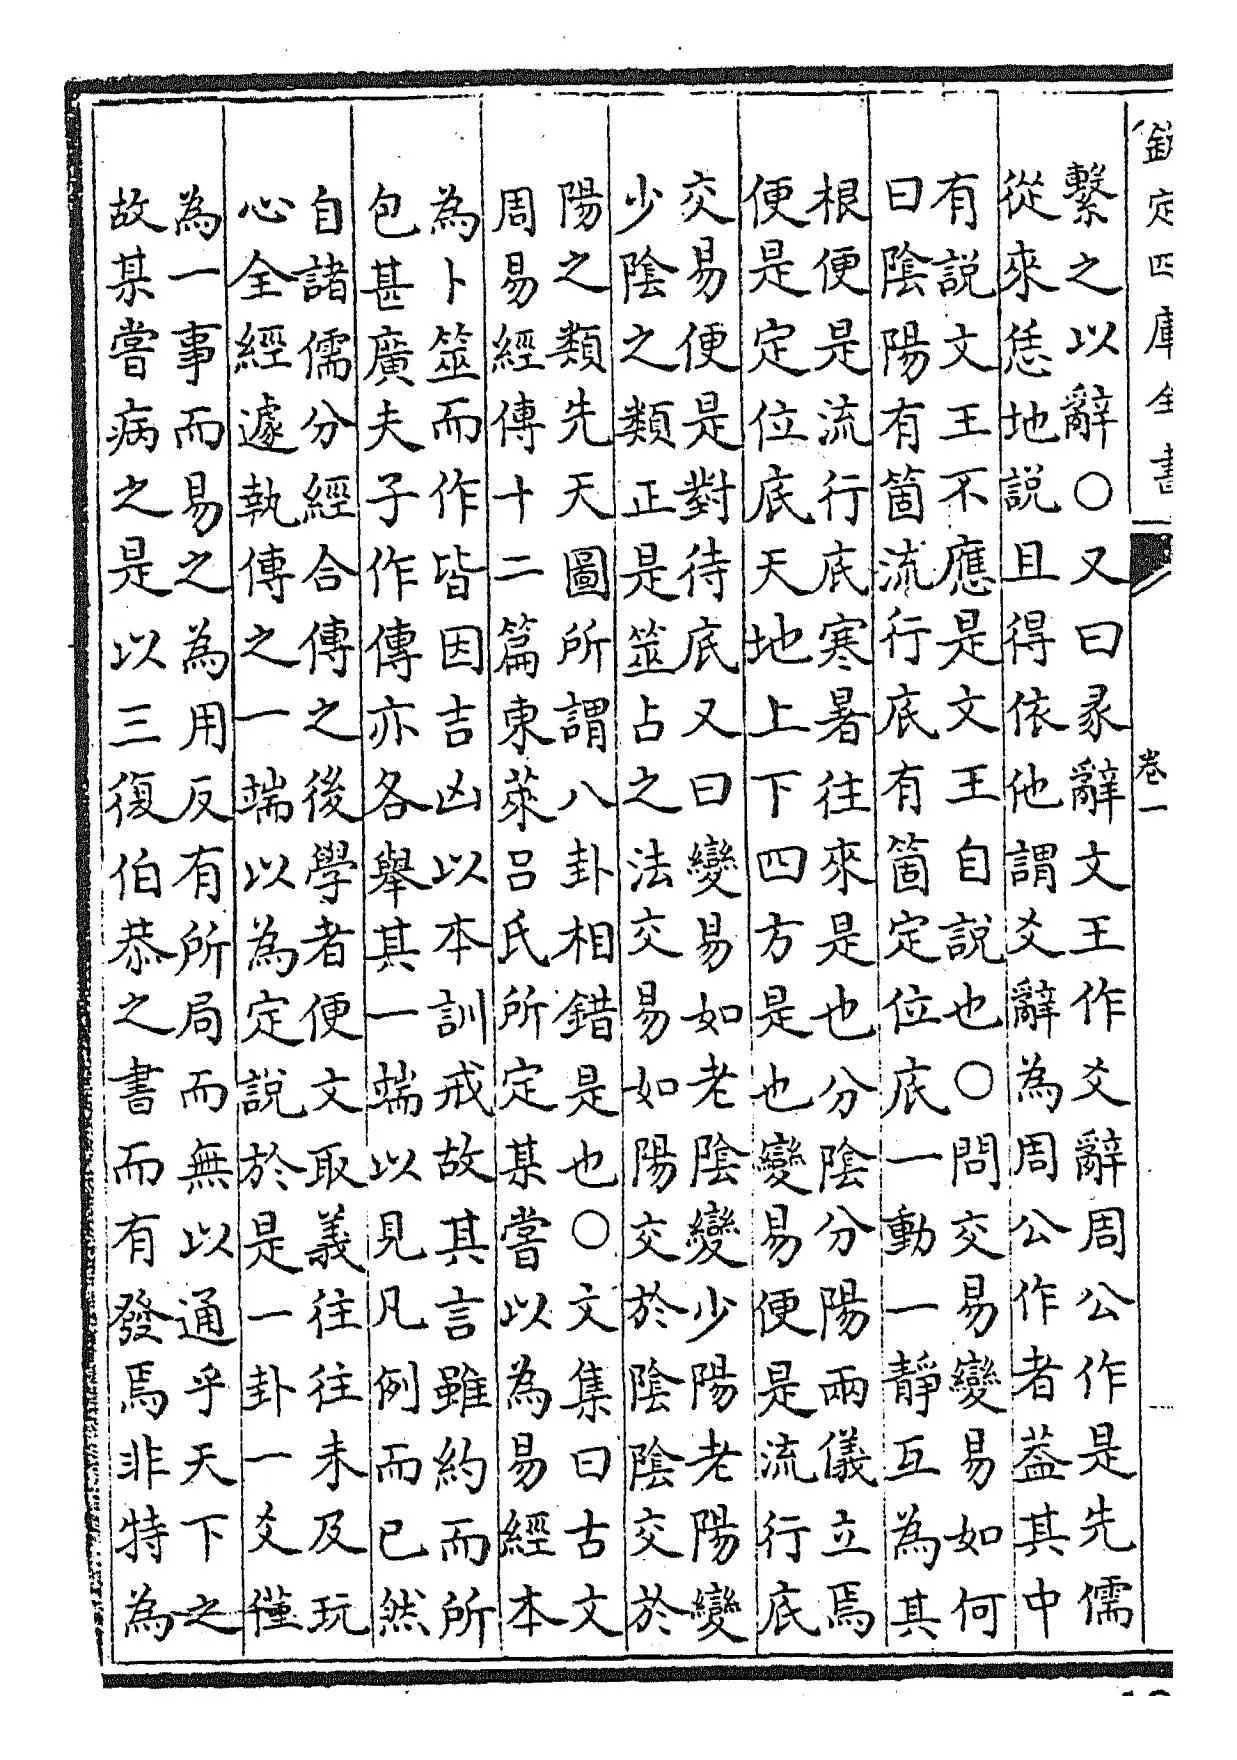 欽定四庫全書
卷一
繫之以辭○又曰彖辭文王作爻辭周公作是先儒
從來恁地説且得依他謂爻辭為周公作者葢其中
有説文王不應是文王自説也○問交易變易如何
曰陰陽有箇流行底有箇定位底一動一靜互為其
根便是流行底寒暑往來是也分陰分陽兩儀立焉
便是定位底天地上下四方是也變易便是流行底
交易便是對待底又曰變易如老陰變少陽老陽變
少陰之類正是筮占之法交易如陽交於陰陰交於
陽之類先天圖所謂八卦相錯是也○文集曰古文
周易經傳十二篇東萊吕氏所定某嘗以為易經本
為卜筮而作皆因吉凶以本訓戒故其言雖約而所
包甚廣夫子作傳亦各舉其一端以見凡例而已然
自諸儒分經合傳之後學者便文取義往往未及玩
心全經遽執傳之一端以為定說於是一卦一爻僅
為一事而易之為用反有所局而無以通乎天下之
故某嘗病之是以三復伯恭之書而有發焉非特為